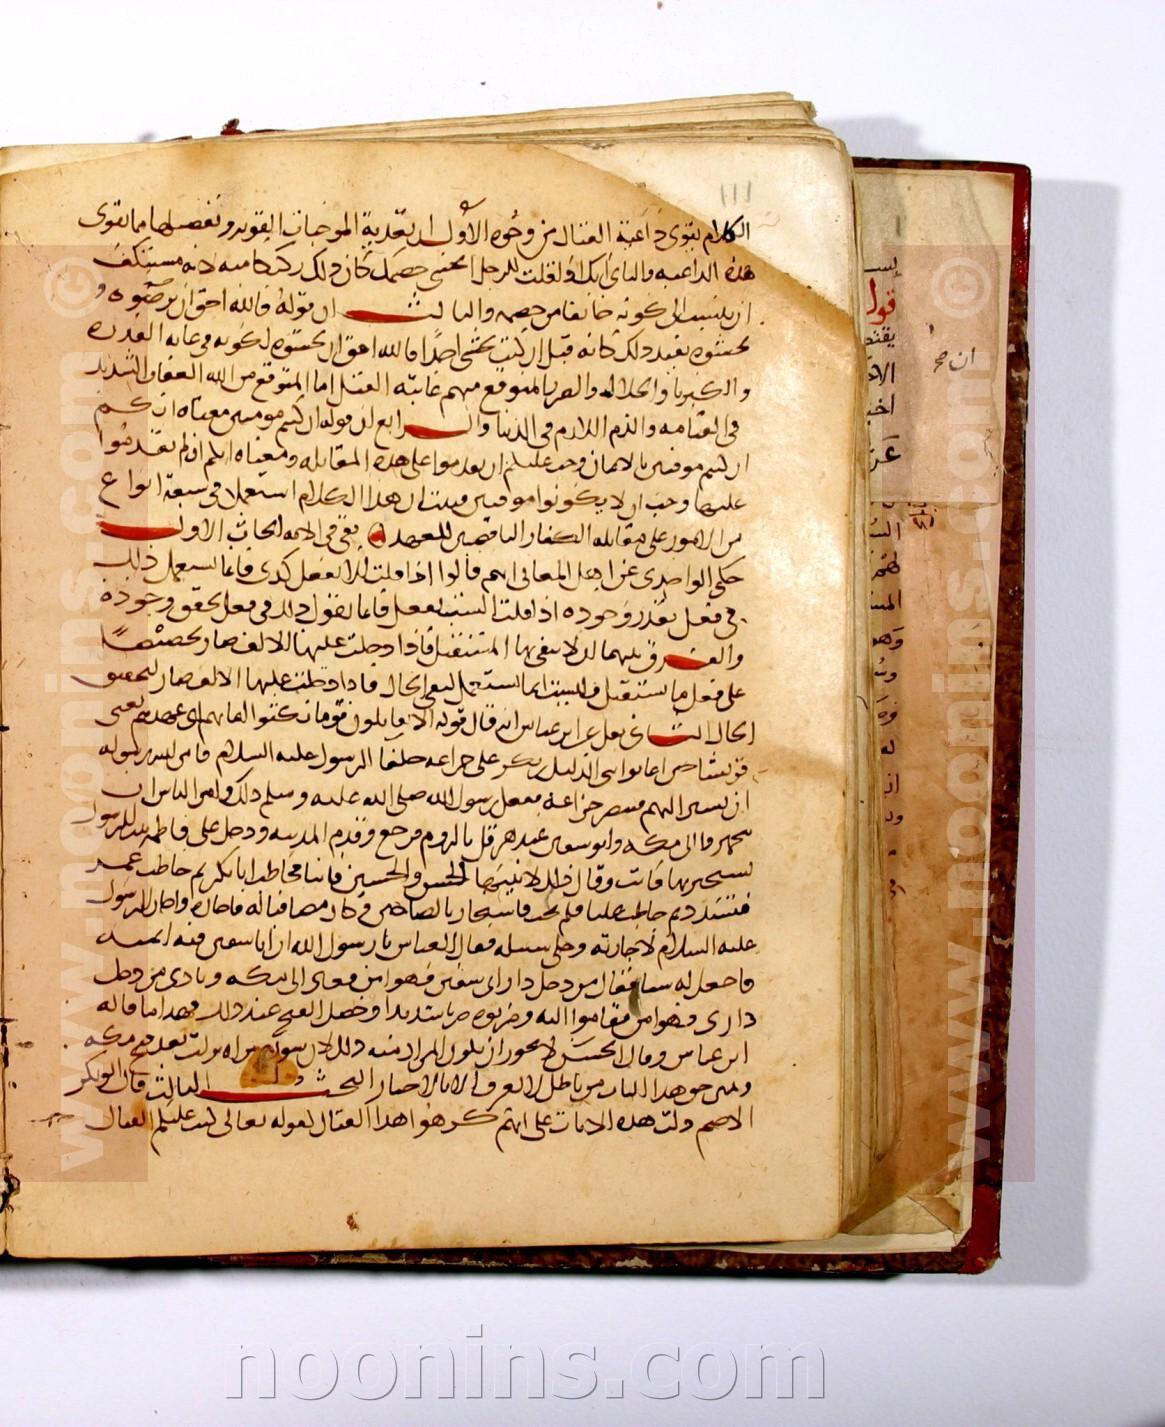 ١١١
الكلام يقوى داعية القتال من وجوه الأول ان تعديد الموجبات القوية وتفصيلها مما يقوى
هذه الداعية والثاني انك اذا قلت للرجل اتخشى خصمك كان ذلك تحركا منه لانه مستنكف
ان ينسب الى كونه خائفا من خصمه والثالث ان قوله فالله احق ان
تخشوه يفيد ذلك كانه قيل ان كنت تخشى احدا فالله احق ان تخشوه لكونه في غاية القدرة
والكبريا والجلالة والضرر المتوقع منهم غايته القتل اما المتوقع من الله العقاب الشديد
في القيامة والذم اللازم في الدنيا والرابع ان قوله ان كنتم مومنين معناه ان كنتم
ان كنتم مومنين بالايمان وجب عليكم ان تقدموا على هذه المقاتلة ومعناه انكم ان لم تقدموا
عليها وجب ان لا يكونوا مومنين فثبت ان هذا الكلام اشتمل على سبعة انواع
من الامور على مقاتلة الكفار الناقضين للعهد بقى في الاية ابحاث الاول
حكى الواحدى عن اهل المعاني انهم قالوا اذا قلت الا تفعل كذى فانما يستعمل ذلك
في فعل يقدر وجوده اذا قلت الست تفعل فانما تقول ذلك في فعل تحقق وجوده
والفرق بينهما ان لا ينفى بها المستقبل فاذا دخلت عليها الالف صار تحضيضا
على فعل ما يستقبل وليس انما تستعمل لنفى الحال فاذا دخلت عليها الالف صار لتحقيق
الحال الثاني نقل عن ابن عباس انه قال قوله الا تقاتلون قوما نكثوا ايمانهم اى عهدهم يعنى
قريشا حين اعانوا بنى الديل بن بكر على خزاعة حلفا الرسول عليه السلام فامر الله رسوله
ان يسير اليهم فينصر خزاعة ففعل رسول الله صلى الله عليه وسلم ذلك وامر الناس ان
يتجهزوا الى مكة وابو سفيان عند هرقل بالروم فرجع وقدم المدينة ودخل على فاطمة بنت الرسول
يستجير بها فابت وقالت ذلك لابنيها الحسن والحسين فابيا فخاطب ابا بكر ثم خاطب عمر
فتشدد ثم خاطب عليا فلم يجبه فاستجار بالعباس وكان مصافيا له فاجاره واجاره الرسول
عليه السلام لاجارته وخلى سبيله فقال العباس يا رسول الله ان ابا سفين فيه ابهة
فاجعل له شيا فقال من دخل دار ابى سفين فهو امن فعاد الى مكة ونادى من دخل
دارى فهو امن فقاموا اليه وضربوه ضربا شديدا وحصل الفتح عند ذلك فهذا ما قاله
ابن عباس وقال الحسن لا يجوز ان يكون المراد منه ذلك لان سورة براه نزلت بعد فتح مكة
وتميز حق هذا الباب من باطله لا يعرف الا بالاخبار البحث الثالث قال ابو بكر
الاصم دلت هذه الايات على انهم كرهوا هذا القتال لقوله تعالى كتب عليكم القتال
ان صح
قول
noonins.com
www.noonins.com ©
www.noonins.com ©